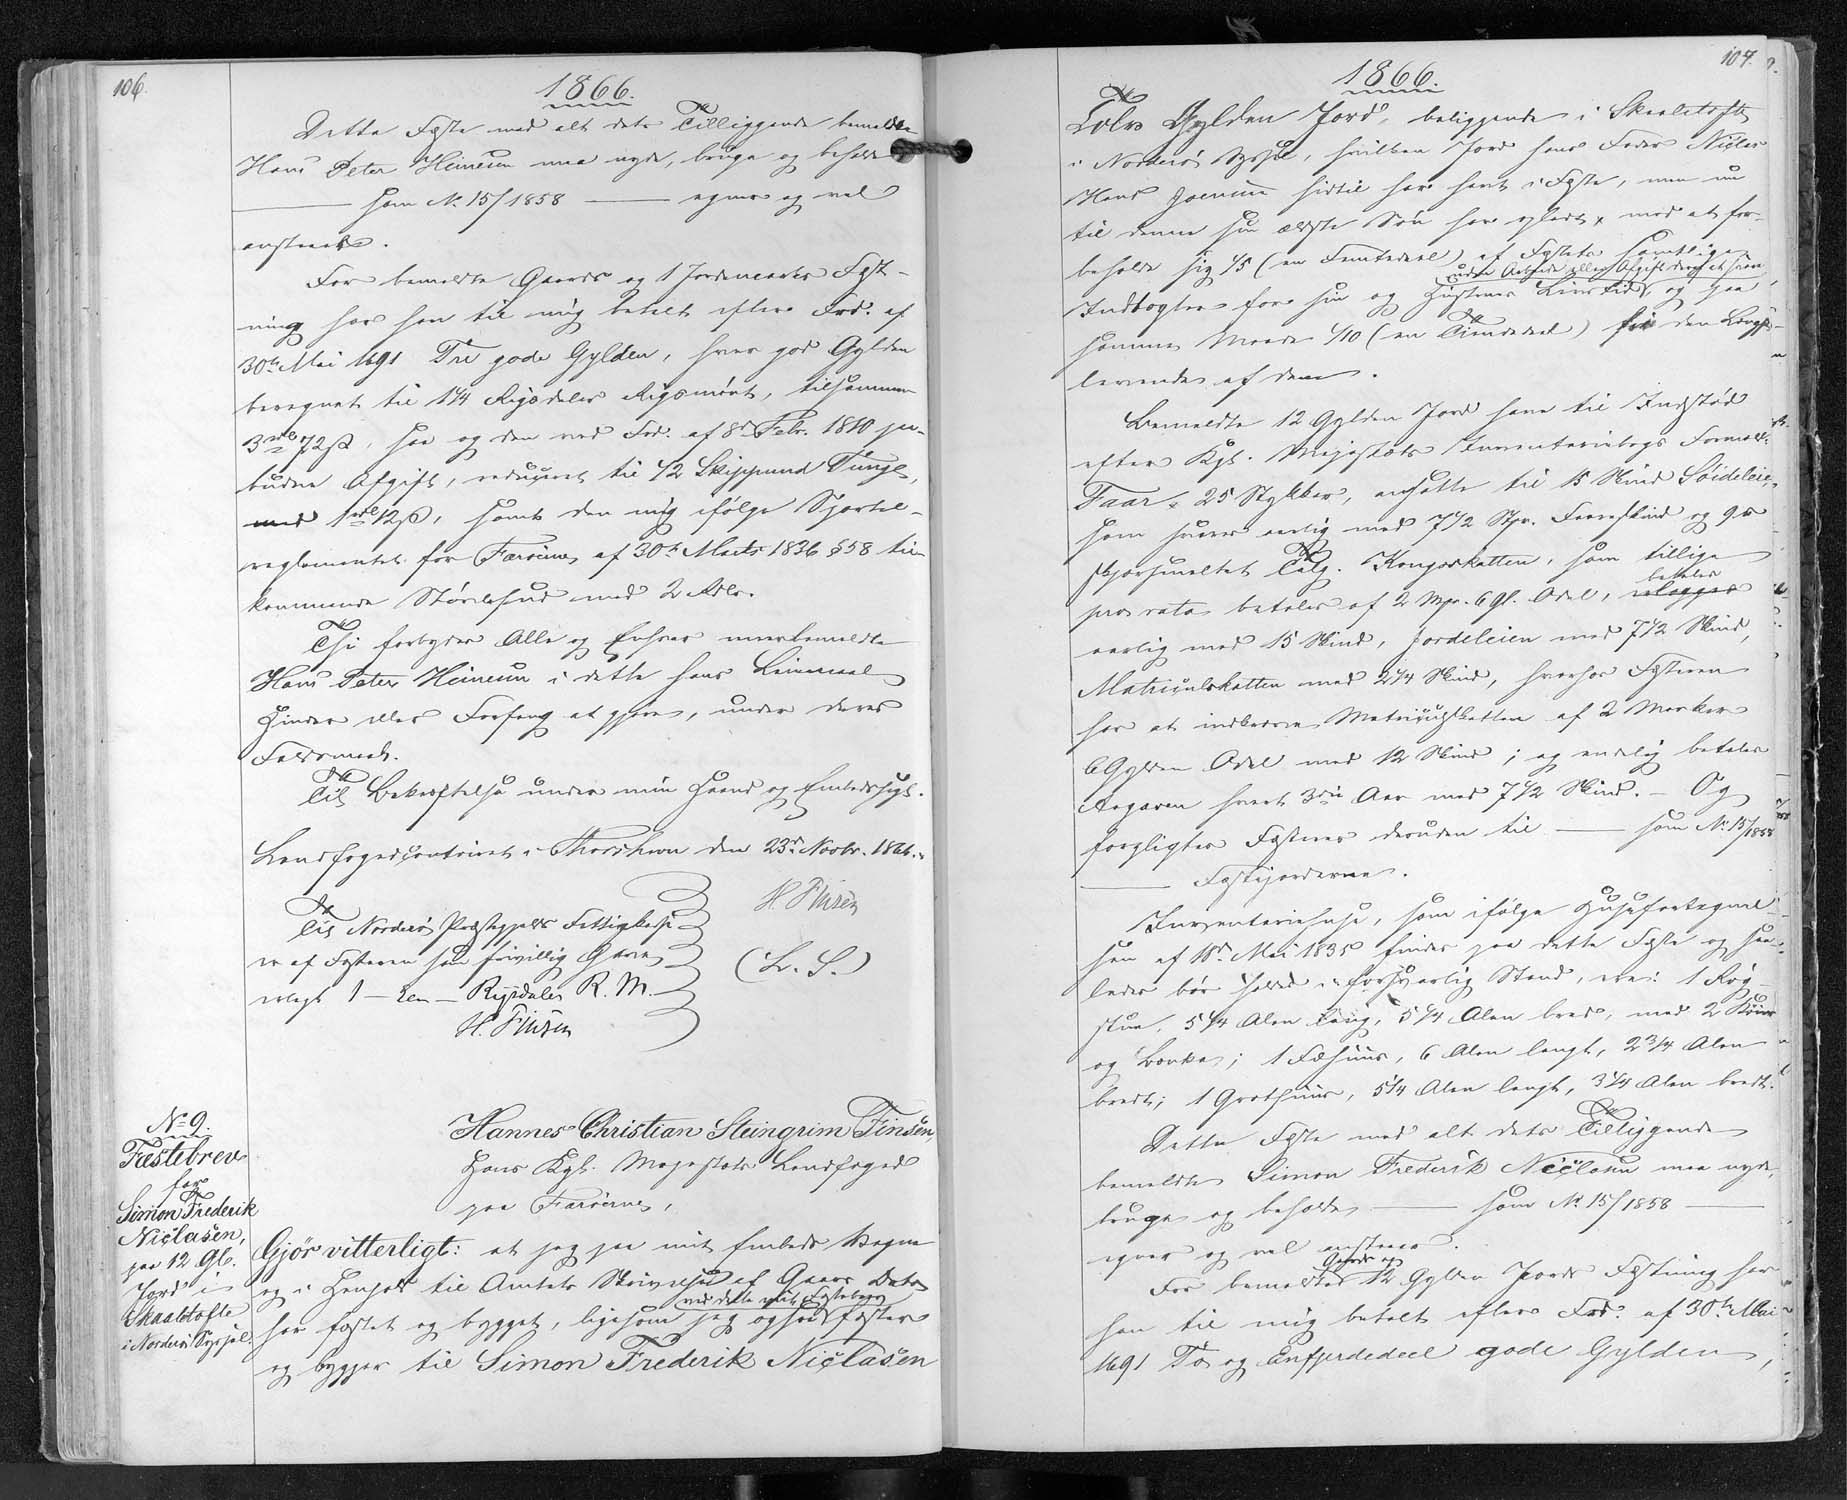 106.
1866.
Dette Fæste med alt dets Tilliggende bemeldte
Hans Peter Heinesen maa nyde, bruge og beholde
— som No 15/1858 — egner og vel
anstaaer.
For bemeldte Gaards og 1 Jordmarks Fæst-
ning har han til mig betalt efter Frd. af
30te Mai 1691 Tre gode Gylden, hver god Gylden
beregnet til 1 1/4 Rigsdaler Rigsmønt, tilsammen
3 rdl 72 ß, saa og den ved Frd. af 8de Febr. 1810 paa-
budne Afgift, reduceret til 1/2 Skippund Tunge,
med 1 rdl 12 ß, samt den mig ifølge Sportel-
reglementet for Færøerne af 30te Marts 1836 § 58 til-
kommende Størlehud med 2 Rdlr.
Thi forbydes Alle og Enhver meerbemeldte
Hans Peter Heinesen i dette hans Leiemaal
Hinder eller Forfang at gjøre, under deres
Faldsmaal.
Til Bekræftelse under min Haand og Embedssegl.
Landfogedcontoiret i Thorshavn den 23de Novbr. 1866.
H. Finsen
(L. S.)
Til Norderø Præstegjelds Fattigkasse
er af Fæsteren som frivillig Gave
erlagt 1 – Een – Rigsdaler R. M.
H. Finsen
No 9.
Fæstebrev
for
Simon Frederik
Niclasen,
paa 12 Gl.
Jord i
Skaaletofte
i Norderø Syssel.
Hannes Christian Steingrim Finsen,
Hans Kgl. Majestæts Landfoged
paa Færøerne,
Gjør vitterligt: at jeg paa mit Embeds Vegne
og i Henhold til Amtets Skrivelse af Gaars Dato
ved dette mit Fæstebrev
har fæstet og bygget, ligesom jeg ogsaa fæster
og bygger til Simon Frederik Niclasen
107.
1866.
Tolv Gylden Jord, beliggende i Skaaletofte
i Norderø Syssel, hvilken Jord hans Fader Niclas
Hans Joensen hidtil har havt i Fæste, men nu
til denne sin ældste Søn har opladt, mod at for-
beholde sig 1/5 (en Femtedeel) af Fæstets samtlige
uden Arbeide eller Afgift deraf at svare
Indtægter for sin og Hustrues Livstid, og paa
samme Maade 1/10 (en Tiendedeel) for den Længst-
levende af dem.
Bemeldte 12 Gylden Jord have til Indstød
efter Kgl. Majestæts Inventariebogs Formeld:
Faar: 25 Stykker, ansatte til 15 Skind Søideleie,
som svares aarlig med 7 1/2 Stkr. Faareskind og 9
skjørsmeltet Talg. Kongsskatten, som tillige
pro rata betales af 2 Mrk. 6 Gl. Odel,
betales
aarlig med 15 Skind, Jordeleien med 7 1/2 Skind,
Matriculskatten med 2 1/4 Skind, hvorhos Fæsteren
har at indkræve Matriculskatten af 2 Marker
6 Gylden Odel med 12 Skind; og endelig betales
Argaven hvert 3die Aar med 7 1/2 Skind. – Og
forpligtes Fæsteren desuden til — som No 15/1858
— Fæstejorderne.
Inventariehuse, som ifølge Husefortegnel-
sen af 18de Mai 1835 findes paa dette Fæste og saa-
ledes bør holdes i forsvarlig Stand, ere: 1 Røg-
stue, 5 1/4 Alen lang, 5 1/4 Alen bred, med 2 Døre
og Lovke; 1 Fæhuus, 6 Alen langt, 2 3/4 Alen
bredt; 1 Grothuus, 5 1/4 Alen langt, 3 1/4 Alen bredt.
Dette Fæste med alt dets Tilliggende
bemeldte Simon Frederik Niclasen maa nyde,
bruge og beholde — som No 15/1858 —
egner og vel anstaaer.
Gaards og
For bemeldte 12 Gylden Jords Fæstning har
han til mig betalt efter Frd. af 30te Mai
1691 To og Enfjerdedeel gode Gylden,